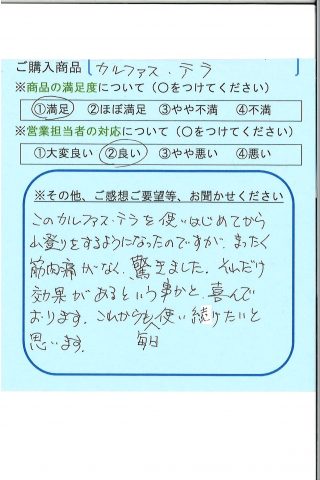 ご購入商品 カルファス・テラ
※商品の満足度について（○をつけてください）
①満足 ②ほぼ満足 ③やや不満 ④不満
※営業担当者の対応について（○をつけてください）
①大変良い ②良い ③やや悪い ④悪い
※その他、ご感想ご要望等、お聞かせください
このカルファス・テラを使いはじめてから
山登りをするようになったのですが、まったく
筋肉痛がなく、驚きました。それだけ
効果があるという事かと、喜んで
おります。これからも使い続けたいと
毎日
思います。